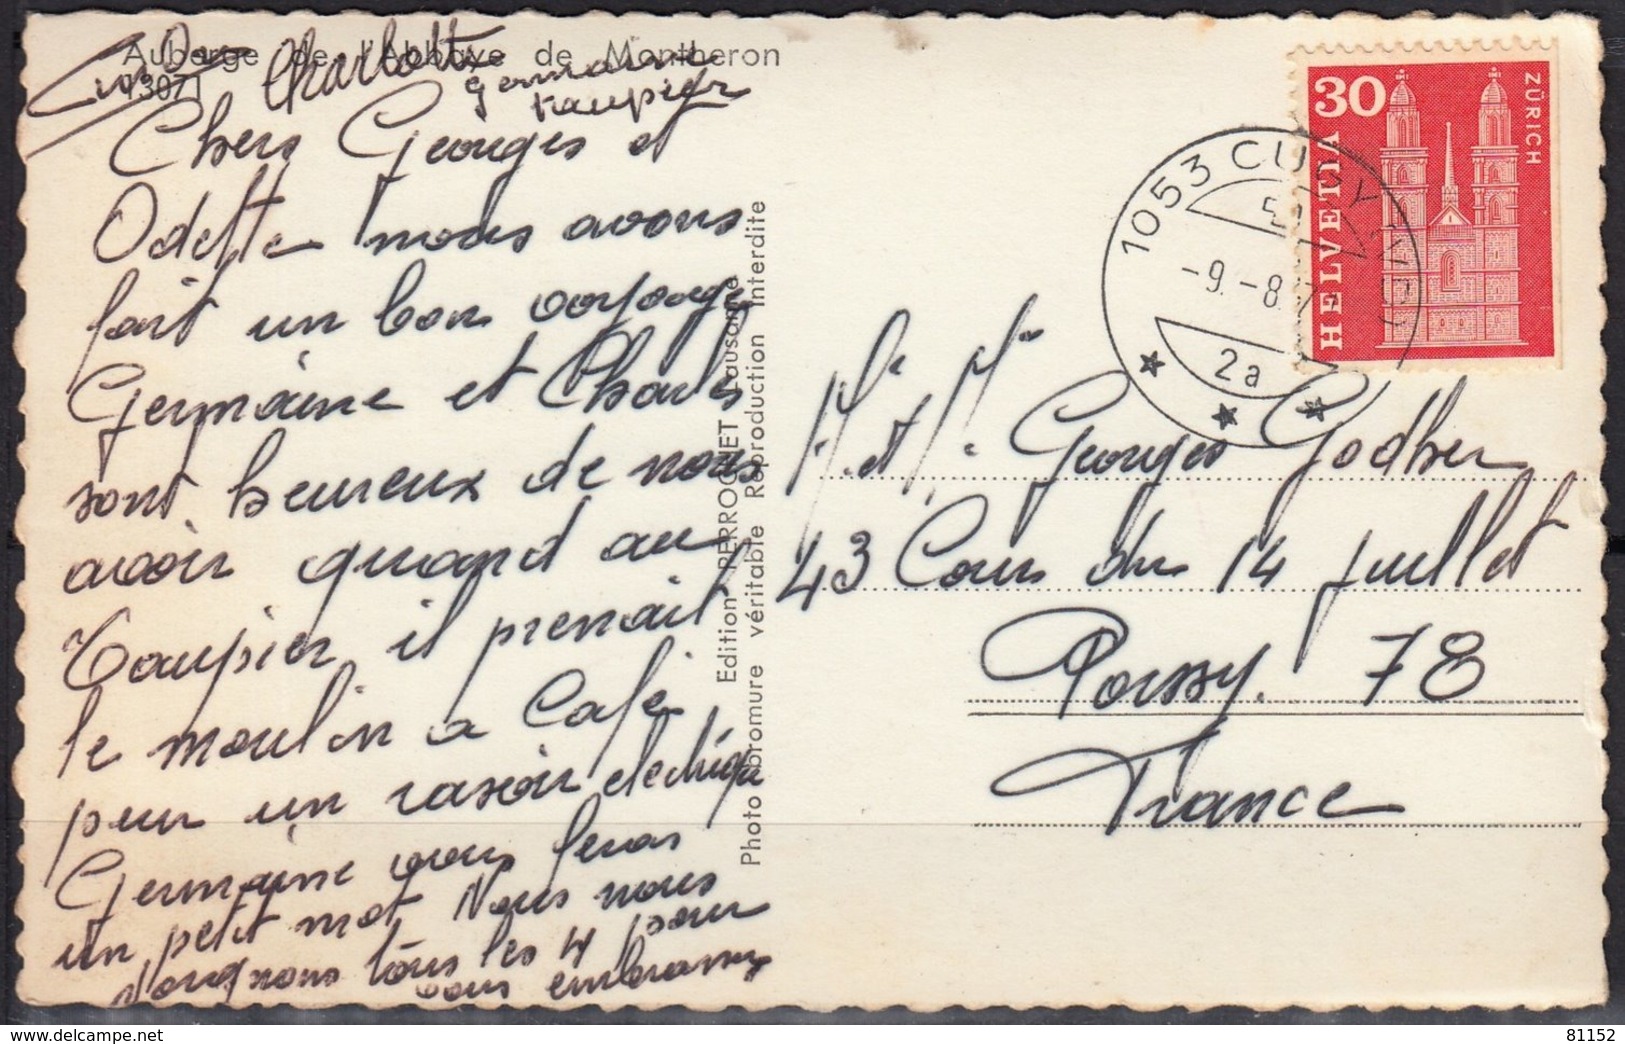 Auberge de l'Abbaye de Montheron
13071
Charlotte
Germaine
Taupier
Chers Georges et
Odette nous avons
fait un bon voyage
Germaine et Charles
sont heureux de nous
avoir quand au
Taupier il prenait
le moulin a Café
pour un rasoir electrique
Germaine vous feras
un petit mot Nous nous
tous les 4 pour
vous embrasser
Edition PERROCHET Lausanne
Photo bromure véritable Reproduction Interdite
HELVETIA
30
ZÜRICH
1053 CUGY (VD)
-9.-8.7
2a
M. et Mme Georges Godher
43 Cour du 14 Juillet
Poissy. 78
France
delcampe.net
81152